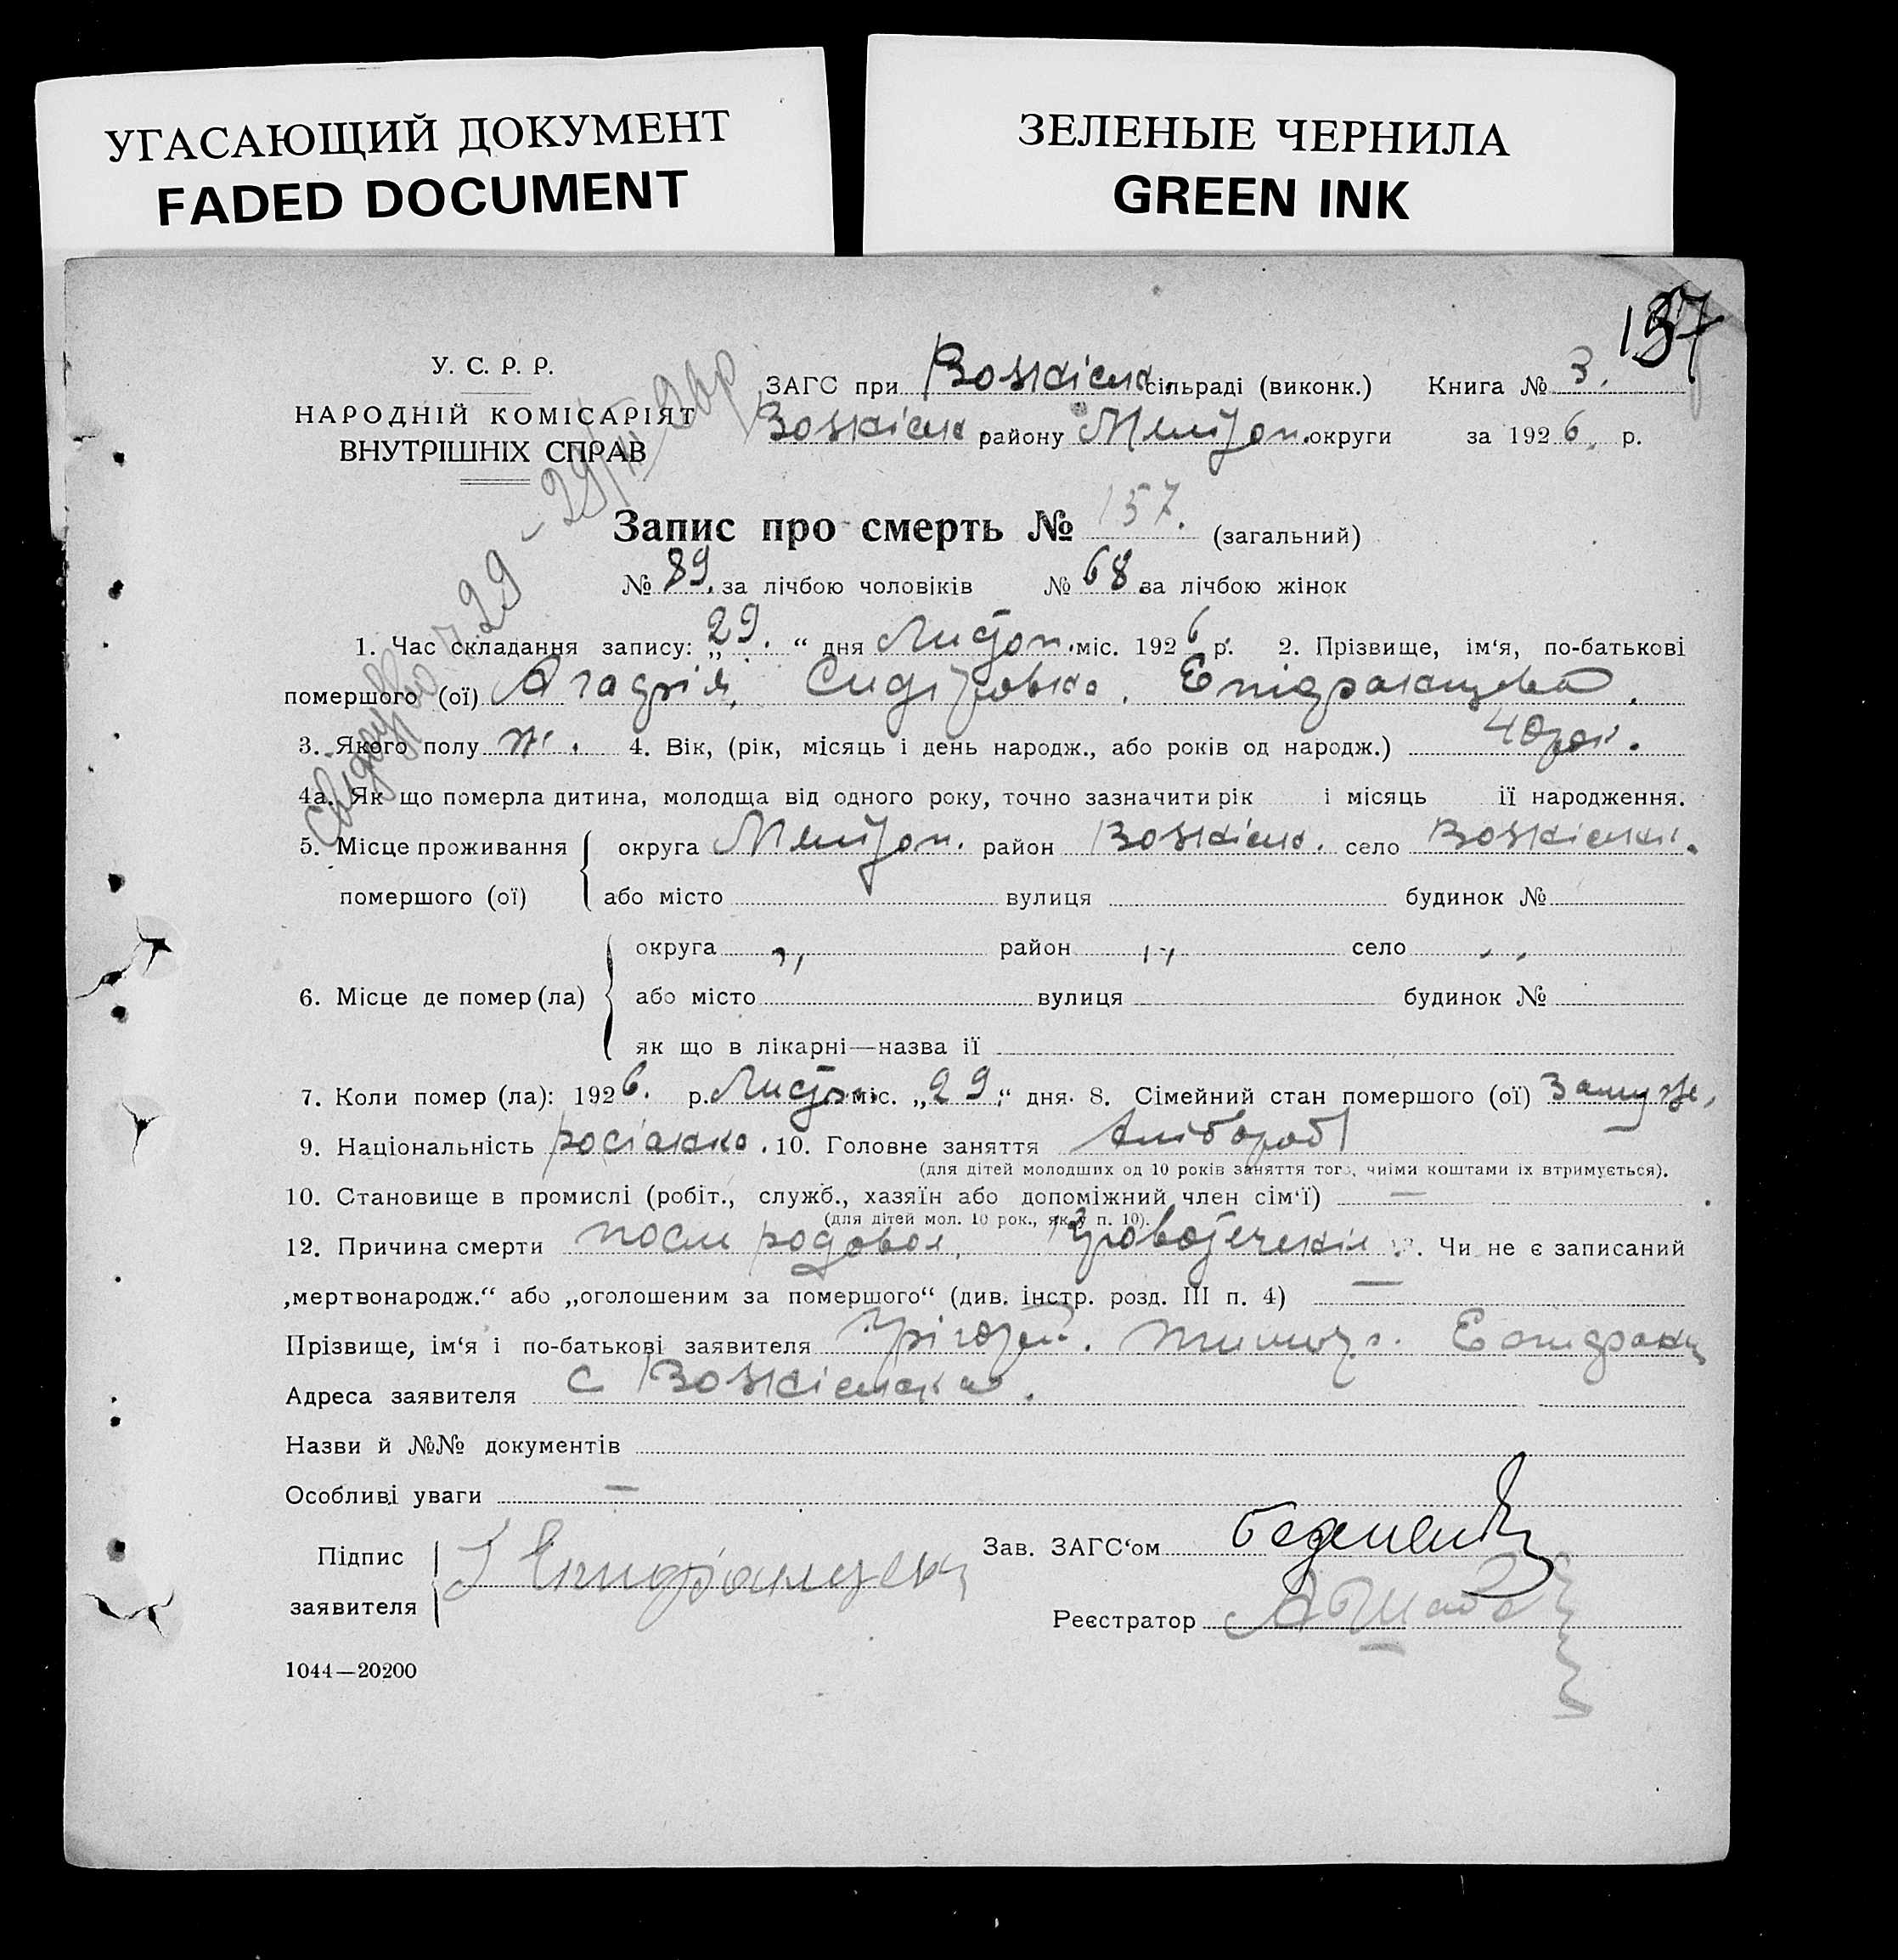 УГАСАЮЩИЙ ДОКУМЕНТ
FADED DOCUMENT
ЗЕЛЕНЫЕ ЧЕРНИЛА
GREEN INK
137
У. С. Р. Р.
НАРОДНІЙ КОМІСАРІЯТ
ВНУТРІШНІХ СПРАВ
ЗАГС при Вознісенк. сільраді (виконк.) Книга № 3.
Вознісенк району Меліт̄оп. округи за 1926. р.
Запис про смерть № 157. (загальний)
№ 89. за лічбою чоловіків № 68 за лічбою жінок
1. Час складання запису: „29.“ дня Листоп. міс. 1926 р. 2. Прізвище, ім‘я, по-батькові
помершого (ої)
3. Якого полу ж. 4. Вік, (рік, місяць і день народж., або років од народж.) 40 рок.
4а. Як що померла дитина, молодща від одного року, точно зазначити рік і місяць її народження.
5. Місце проживання помершого (ої) округа Меліт̄оп. район Вознісенк. село
або місто вулиця будинок №
6. Місце де помер (ла) округа „ район „ село „
або місто вулиця будинок №
як що в лікарні—назва її
7. Коли помер (ла): 1926. р. Листоп. міс. „29“ дня. 8. Сімейний стан помершого (ої) Замуже,
9. Національність росіанка. 10. Головне заняття
(для дітей молодших од 10 років заняття того, чиїми коштами їх втримується).
10. Становище в промислі (робіт., служб., хазяїн або допоміжний член сім‘ї) —
(для дітей мол. 10 рок., як у п. 10).
12. Причина смерти после родовое, кровотеченіе. Чи не є записаний
„мертвонародж.“ або „оголошеним за помершого“ (див. інстр. розд. III п. 4) —
Прізвище, ім‘я і по-батькові заявителя
Адреса заявителя с Вознісенка.
Назви й №№ документів
Особливі уваги —
Підпис заявителя
Зав. ЗАГС‘ом
Реєстратор
1044—20200